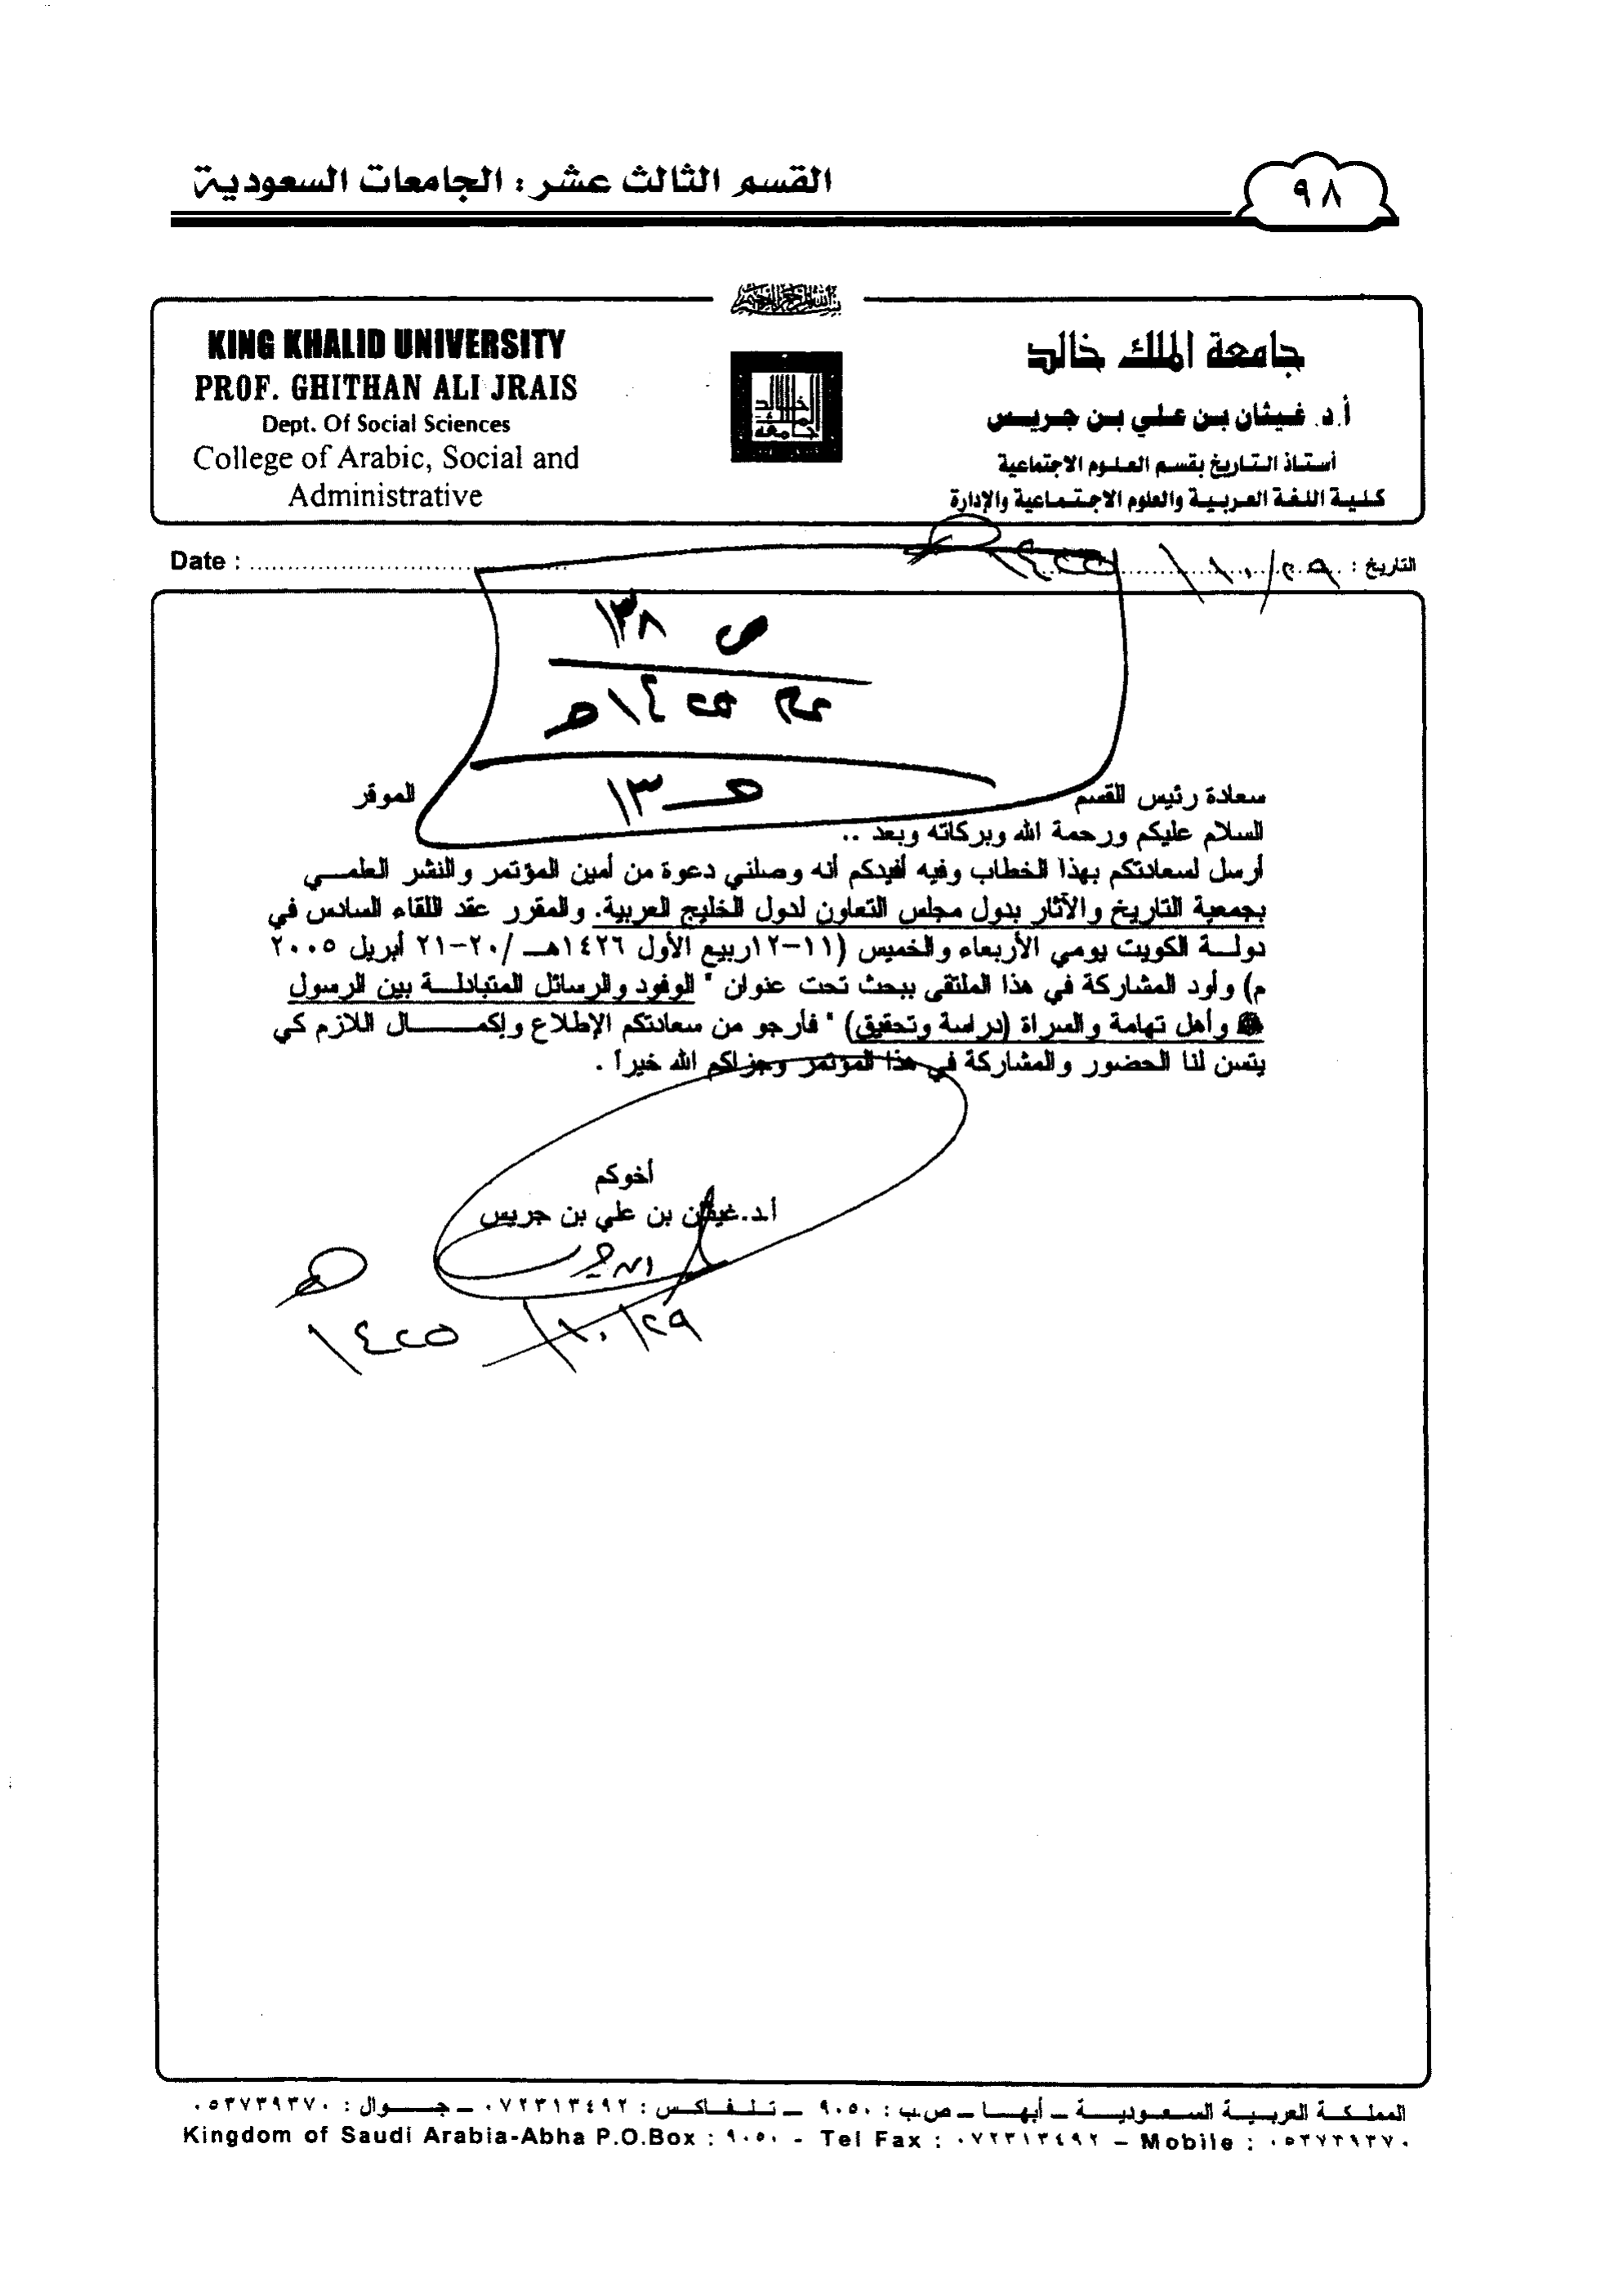 القسم الثالث عشر : الجامعات السعودية
٩٨
بسم الله الرحمن الرحيم
KING KHALID UNIVERSITY
PROF. GHITHAN ALI JRAIS
Dept. Of Social Sciences
College of Arabic, Social and
Administrative
جامعة الملك خالد
أ.د. غيثان بن علي بن جريس
أستاذ التاريخ بقسم العلوم الاجتماعية
كلية اللغة العربية والعلوم الاجتماعية والإدارة
جامعة الملك خالد
التاريخ : ٢٩/١٠/١٤٢٥هـ
Date :
ص ١٣٨
١٤٢٥هـ
هـ ١٣
سعادة رئيس القسم الموقر
السلام عليكم ورحمة الله وبركاته وبعد ..
أرسل لسعادتكم بهذا الخطاب وفيه أفيدكم أنه وصلني دعوة من أمين المؤتمر والنشر العلمـــي
بجمعية التاريخ والآثار بدول مجلس التعاون لدول الخليج العربية. والمقرر عقد اللقاء السادس في
دولـــة الكويت يومي الأربعاء والخميس (١١-١٢ربيع الأول ١٤٢٦هـــ /٢٠-٢١ أبريل ٢٠٠٥
م) وأود المشاركة في هذا الملتقى ببحث تحت عنوان " الوفود والرسائل المتبادلـــة بين الرسول
ﷺ وأهل تهامة والسراة (دراسة وتحقيق) " فأرجو من سعادتكم الإطلاع وإكمـــــال اللازم كي
يتسن لنا الحضور والمشاركة في هذا المؤتمر وجزاكم الله خيراً .
أخوكم
أ.د.غيثان بن علي بن جريس
٢٩/١٠/١٤٢٥هـ
المملكـة العربيـة السـعوديـــة ـ أبهـــا ـ ص.ب : ٩٠٥٠ ـ تـلـفـاكـس : ٠٧٢٣١٣٤٩٢ ـ جــوال : ٠٥٣٧٣٩٣٧٠
Kingdom of Saudi Arabia-Abha P.O.Box : ٩٠٥٠ - Tel Fax : ٠٧٢٣١٣٤٩٢ – Mobile : ٠٥٣٧٣٩٣٧٠